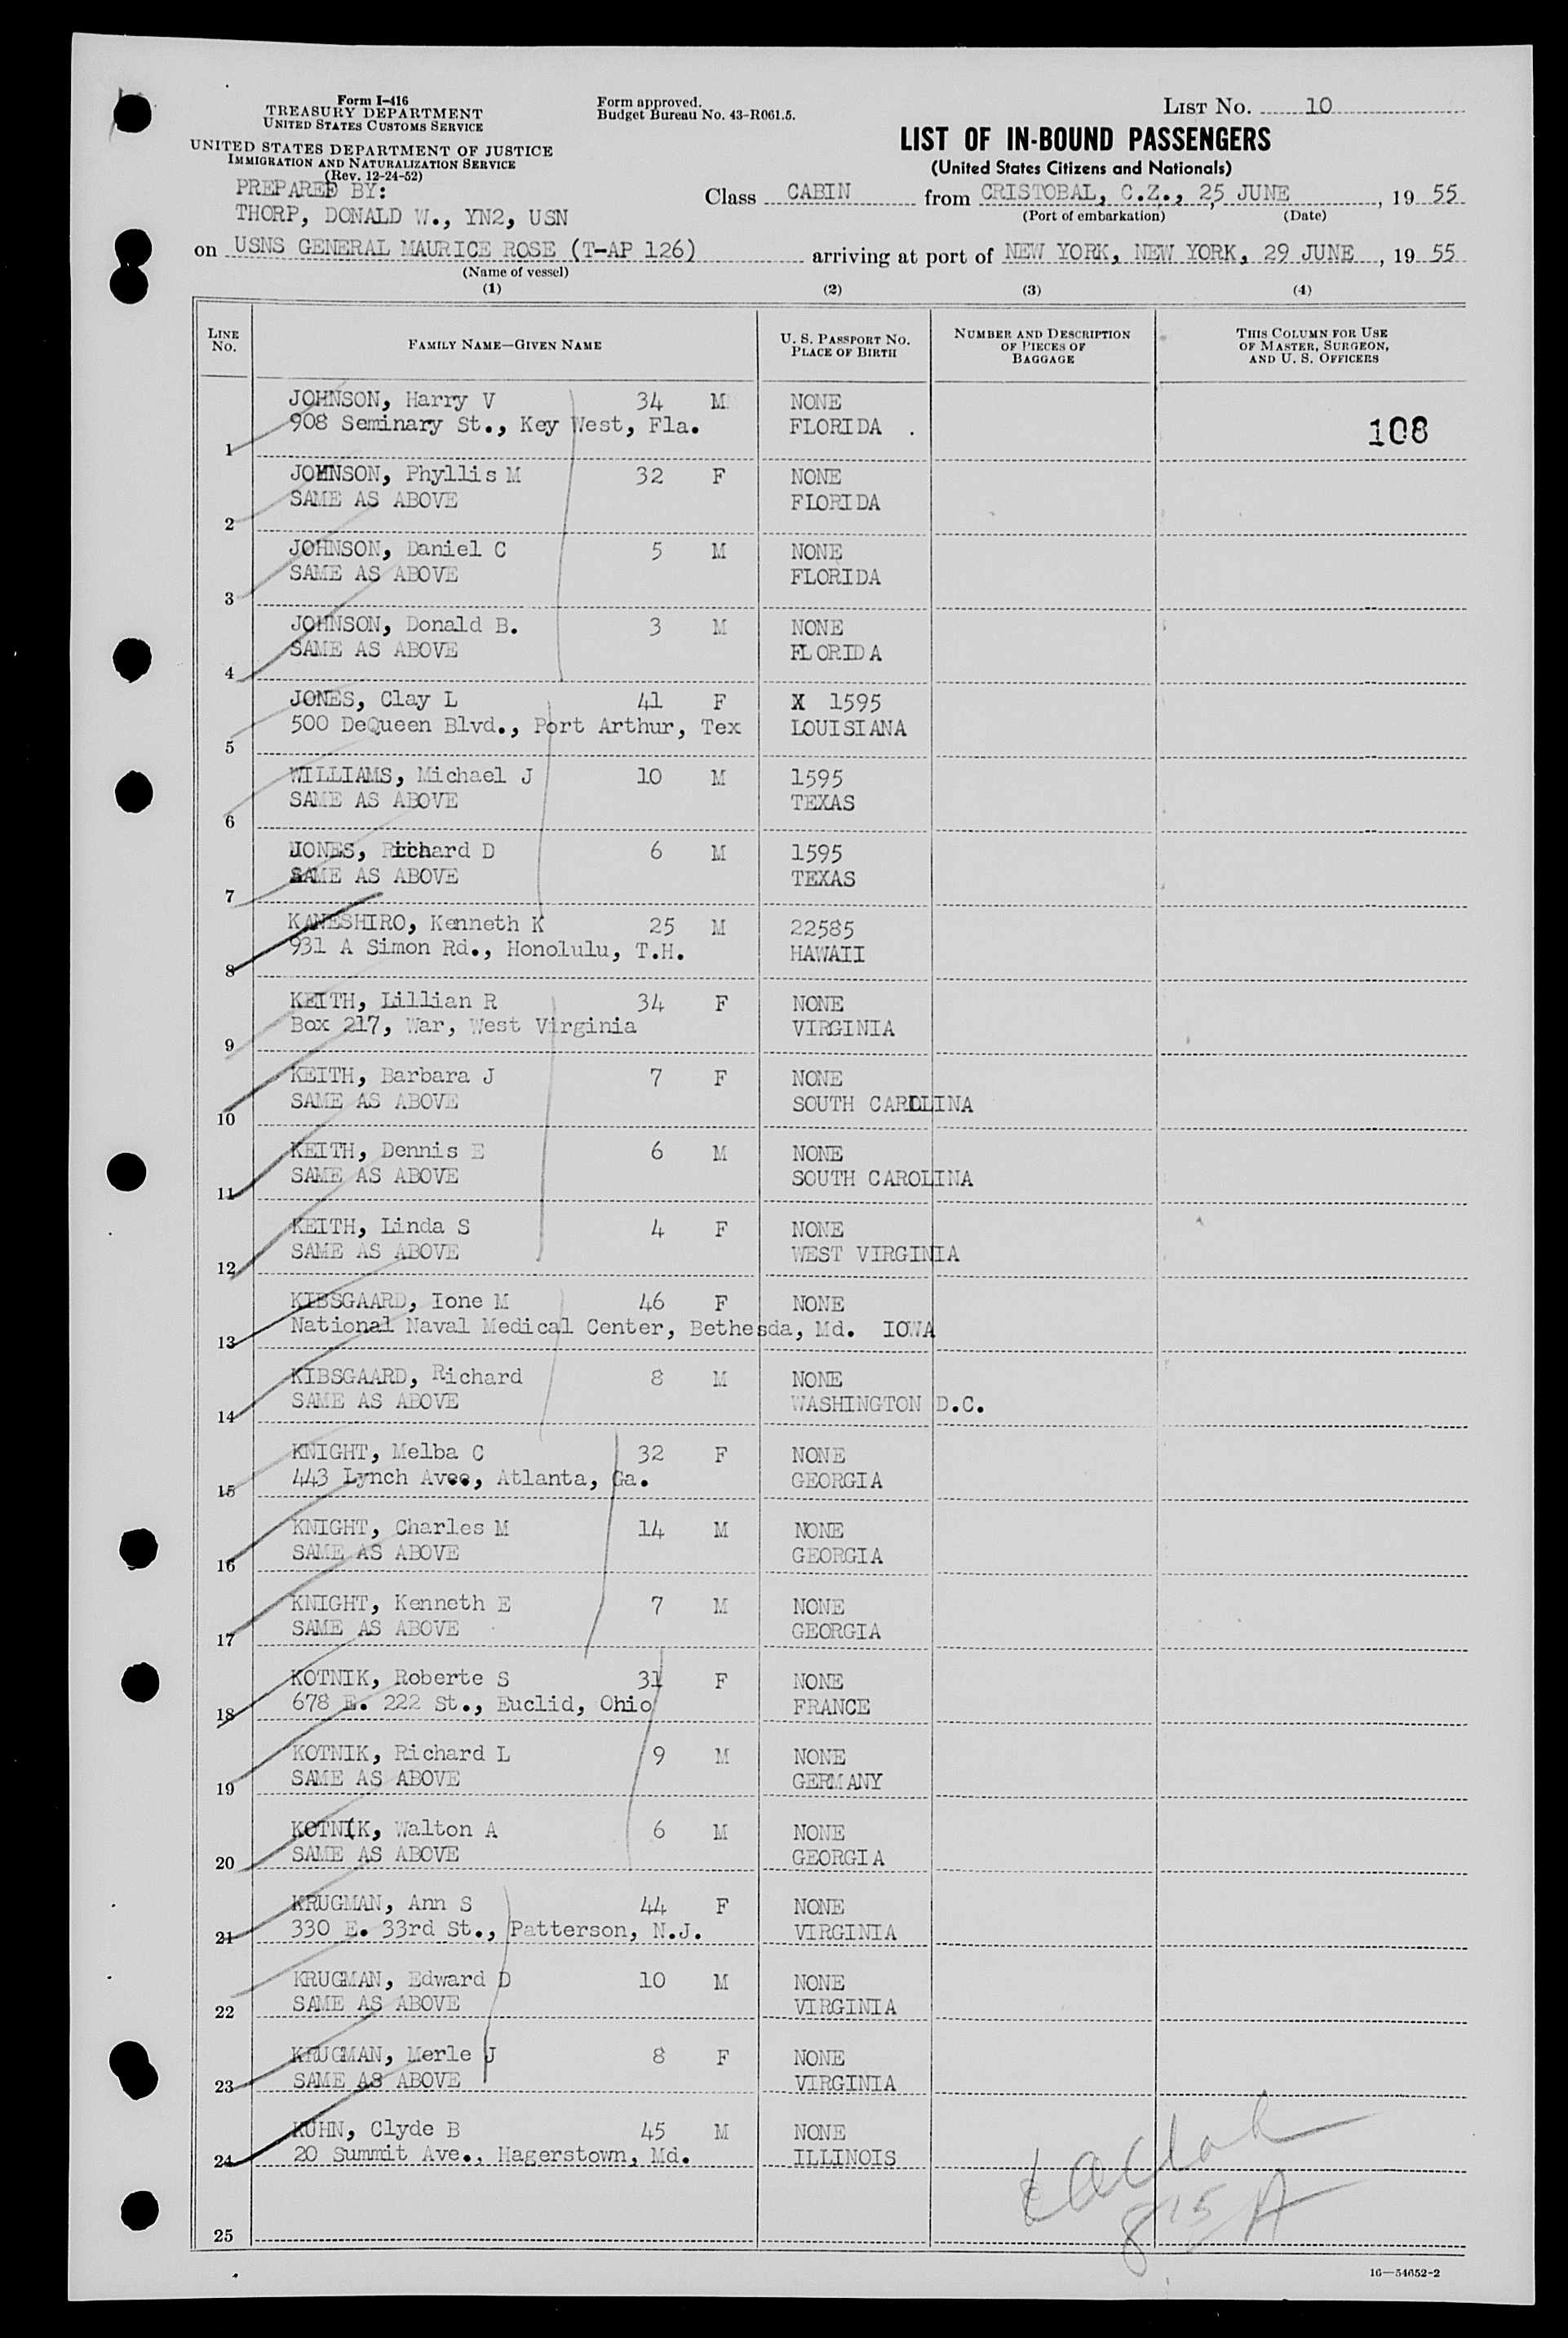 Form I-416
TREASURY DEPARTMENT
UNITED STATES CUSTOMS SERVICE
UNITED STATES DEPARTMENT OF JUSTICE
IMMIGRATION AND NATURALIZATION SERVICE
(Rev. 12-24-52)
Form approved.
Budget Bureau No. 43-R061.5.
LIST NO. 10
LIST OF IN-BOUND PASSENGERS
(United States Citizens and Nationals)
PREPARED BY:
THORP, DONALD W., YN2, USN
Class CABIN from CRISTOBAL, C.Z., 25 JUNE, 19 55
(Port of embarkation) (Date)
on USNS GENERAL MAURICE ROSE (T-AP 126) arriving at port of NEW YORK, NEW YORK, 29 JUNE, 19 55
(Name of vessel)
(1) (2) (3) (4)
LINE NO. FAMILY NAME—GIVEN NAME U. S. PASSPORT NO. PLACE OF BIRTH NUMBER AND DESCRIPTION OF PIECES OF BAGGAGE THIS COLUMN FOR USE OF MASTER, SURGEON, AND U. S. OFFICERS
JOHNSON, Harry V 34 M NONE
1 908 Seminary St., Key West, Fla. FLORIDA 108
JOHNSON, Phyllis M 32 F NONE
2 SAME AS ABOVE FLORIDA
JOHNSON, Daniel C 5 M NONE
3 SAME AS ABOVE FLORIDA
JOHNSON, Donald B. 3 M NONE
4 SAME AS ABOVE FLORIDA
JONES, Clay L 41 F X 1595
5 500 DeQueen Blvd., Port Arthur, Tex LOUISIANA
WILLIAMS, Michael J 10 M 1595
6 SAME AS ABOVE TEXAS
JONES, Richard D 6 M 1595
7 SAME AS ABOVE TEXAS
KANESHIRO, Kenneth K 25 M 22585
8 931 A Simon Rd., Honolulu, T.H. HAWAII
KEITH, Lillian R 34 F NONE
9 Box 217, War, West Virginia VIRGINIA
KEITH, Barbara J 7 F NONE
10 SAME AS ABOVE SOUTH CAROLINA
KEITH, Dennis E 6 M NONE
11 SAME AS ABOVE SOUTH CAROLINA
KEITH, Linda S 4 F NONE
12 SAME AS ABOVE WEST VIRGINIA
KIBSGAARD, Ione M 46 F NONE
13 National Naval Medical Center, Bethesda, Md. IOWA
KIBSGAARD, Richard 8 M NONE
14 SAME AS ABOVE WASHINGTON D.C.
KNIGHT, Melba C 32 F NONE
15 443 Lynch Avee, Atlanta, Ga. GEORGIA
KNIGHT, Charles M 14 M NONE
16 SAME AS ABOVE GEORGIA
KNIGHT, Kenneth E 7 M NONE
17 SAME AS ABOVE GEORGIA
KOTNIK, Roberte S 31 F NONE
18 678 E. 222 St., Euclid, Ohio FRANCE
KOTNIK, Richard L 9 M NONE
19 SAME AS ABOVE GERMANY
KOTNIK, Walton A 6 M NONE
20 SAME AS ABOVE GEORGIA
KRUGMAN, Ann S 44 F NONE
21 330 E. 33rd St., Patterson, N.J. VIRGINIA
KRUGMAN, Edward D 10 M NONE
22 SAME AS ABOVE VIRGINIA
KRUGMAN, Merle J 8 F NONE
23 SAME AS ABOVE VIRGINIA
KUHN, Clyde B 45 M NONE
24 20 Summit Ave., Hagerstown, Md. ILLINOIS
25
16—54652-2